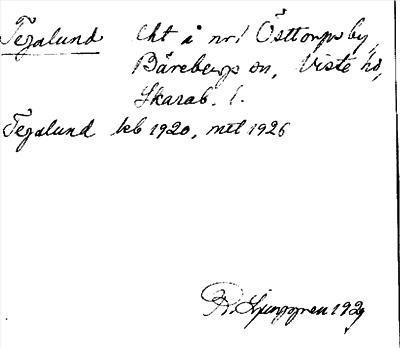 Tegalund lht å nr 1 Östtorps by,
Bärebergs sn, Viste hd,
Skarab. l.
Tegalund kb 1920, mtl 1926
R. Ljunggren 1929